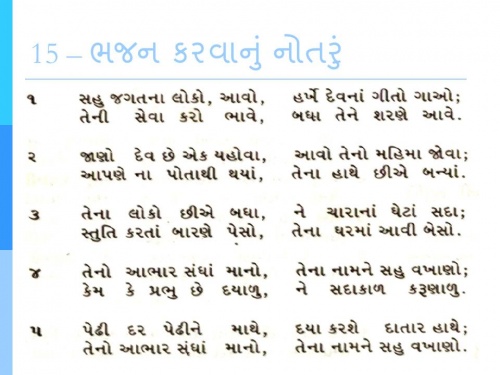 15 – ભજન કરવાનું નોતરું
૧ સહુ જગતના લોકો, આવો, હર્ખે દેવનાં ગીતો ગાઓ;
તેની સેવા કરો ભાવે, બધા તેને શરણે આવે.
૨ જાણો દેવ છે એક યહોવા, આવો તેનો મહિમા જોવા;
આપણે ના પોતાથી થયાં, તેના હાથે છીએ બન્યાં.
૩ તેના લોકો છીએ બધા, ને ચારાનાં ઘેટાં સદા;
સ્તુતિ કરતાં બારણે પેસો, તેના ઘરમાં આવી બેસો.
૪ તેનો આભાર સંધાં માનો, તેના નામને સહુ વખાણો;
કેમ કે પ્રભુ છે દયાળુ, ને સદાકાળ કરૂણાળુ.
૫ પેઢી દર પેઢીને માથે, દયા કરશે દાતાર હાથે;
તેનો આભાર સંધાં માનો, તેના નામને સહુ વખાણો.